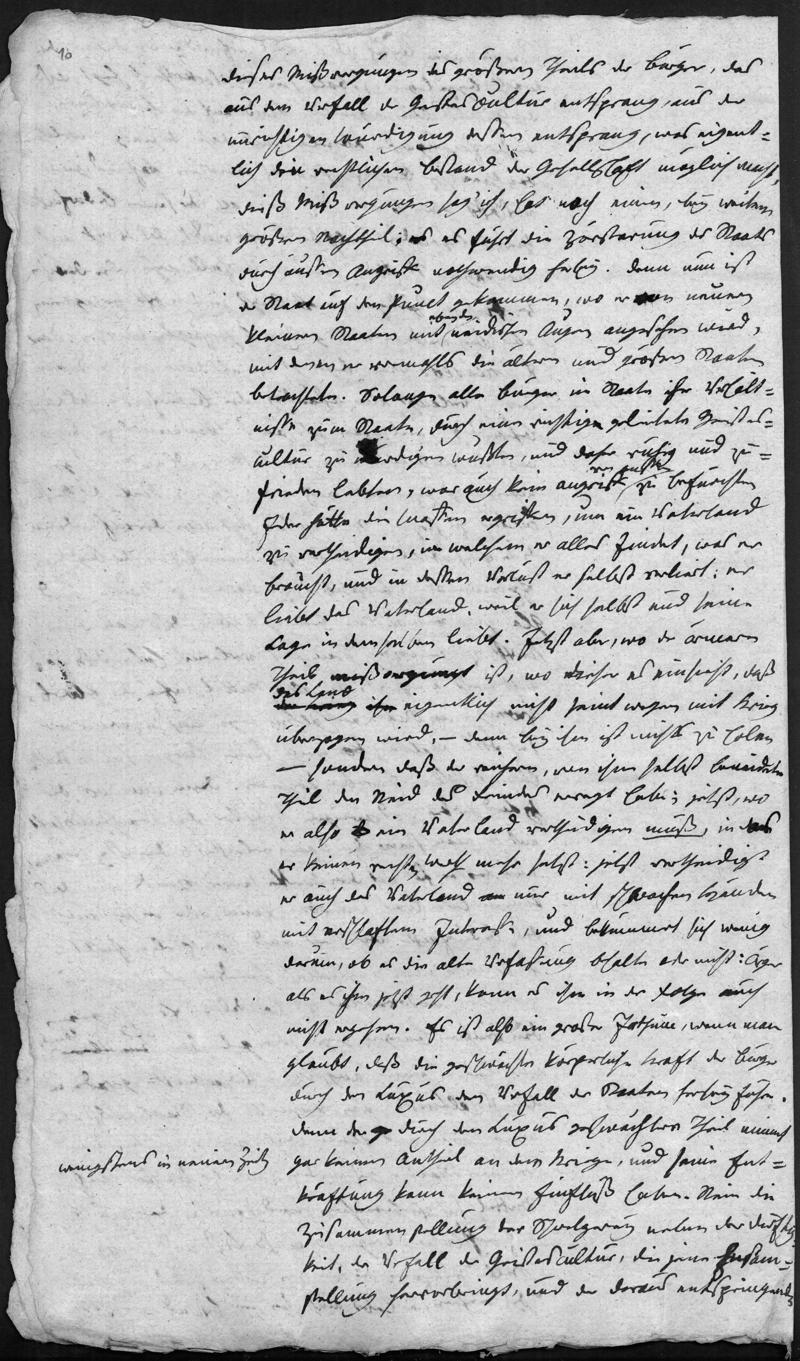 10
dieses Mißvergnügen des größern Theils der Bürger, das
aus dem Verfall der Geistescultur entsprang, aus der
unrichtigen Würdigung dessen entsprang, was eigent=
lich den rechtlichen Bestand der Gesellschaft möglich macht,
dieß Mißvergnügen sag' ich, hat noch einen, bey weitem
größern Nachtheil; es führt die Zerstörung des Staats
durch äußern Angriff nothwendig herbey. Denn nun ist
der Staat auf den Punct gekommen, wo er von neuen
kleinern Staaten mit eben den neidischen Augen angesehen wird,
mit denen er vormahls die ältern und größern Staaten
betrachtete. Solange alle Bürger im Staate ihr Verhält=
niß zum Staate, durch eine richtige geleitete Geistes=
cultur zu würdigen wußten, und daher ruhig und zu=
frieden lebten, war auch kein Angriff von außen zu befürchten
Jeder hätte die Waffen ergriffen, um ein Vaterland
zu vertheidigen, in welchem er alles findet, was er
braucht, und in dessen Verlust er selbst verliert; er
liebt das Vaterland, weil er sich selbst und seine
Lage in demselben liebt. Jetzt aber, wo der ärmere
Theil mißvergnügt ist, wo dieser es einsieht, daß
das Land eigentlich nicht seinetwegen mit Krieg
überzogen wird, — denn bey ihm ist nichts zu holen
— sondern daß der reichere, von ihm selbst beneidete
Theil den Neid des Feindes erregt habe; jetzt, wo
er also ein Vaterland vertheidigen muß, in das
er keinen rechten Werth mehr setzt: jetzt vertheidigt
er auch das Vaterland nur mit schwachen Händen
mit erschlafftem Interesse, und bekümmert sich wenig
darum, ob es die alte Verfassung behalte oder nicht: Ärger
als es ihm jetzt geht, kann es ihm in der Folge auch
nicht ergehen. Es ist also ein großer Irrthum, wenn man
glaubt, daß die geschwächte körperliche Kraft der Bürger
durch den Luxus den Verfall der Staaten herbey führe.
Denn der durch den Luxus geschwächte Theil nimmt
wenigstens in neuern Zeiten
gar keinen Antheil an dem Kriege, und seine Ent=
kräftung kann keinen Einfluß haben. Nein die
Zusammenstellung der Schwelgerey neben der Dürftig
keit, der Verfall der Geistescultur, die jene Zusam=
stellung hervorbringt, und der daraus entspringende